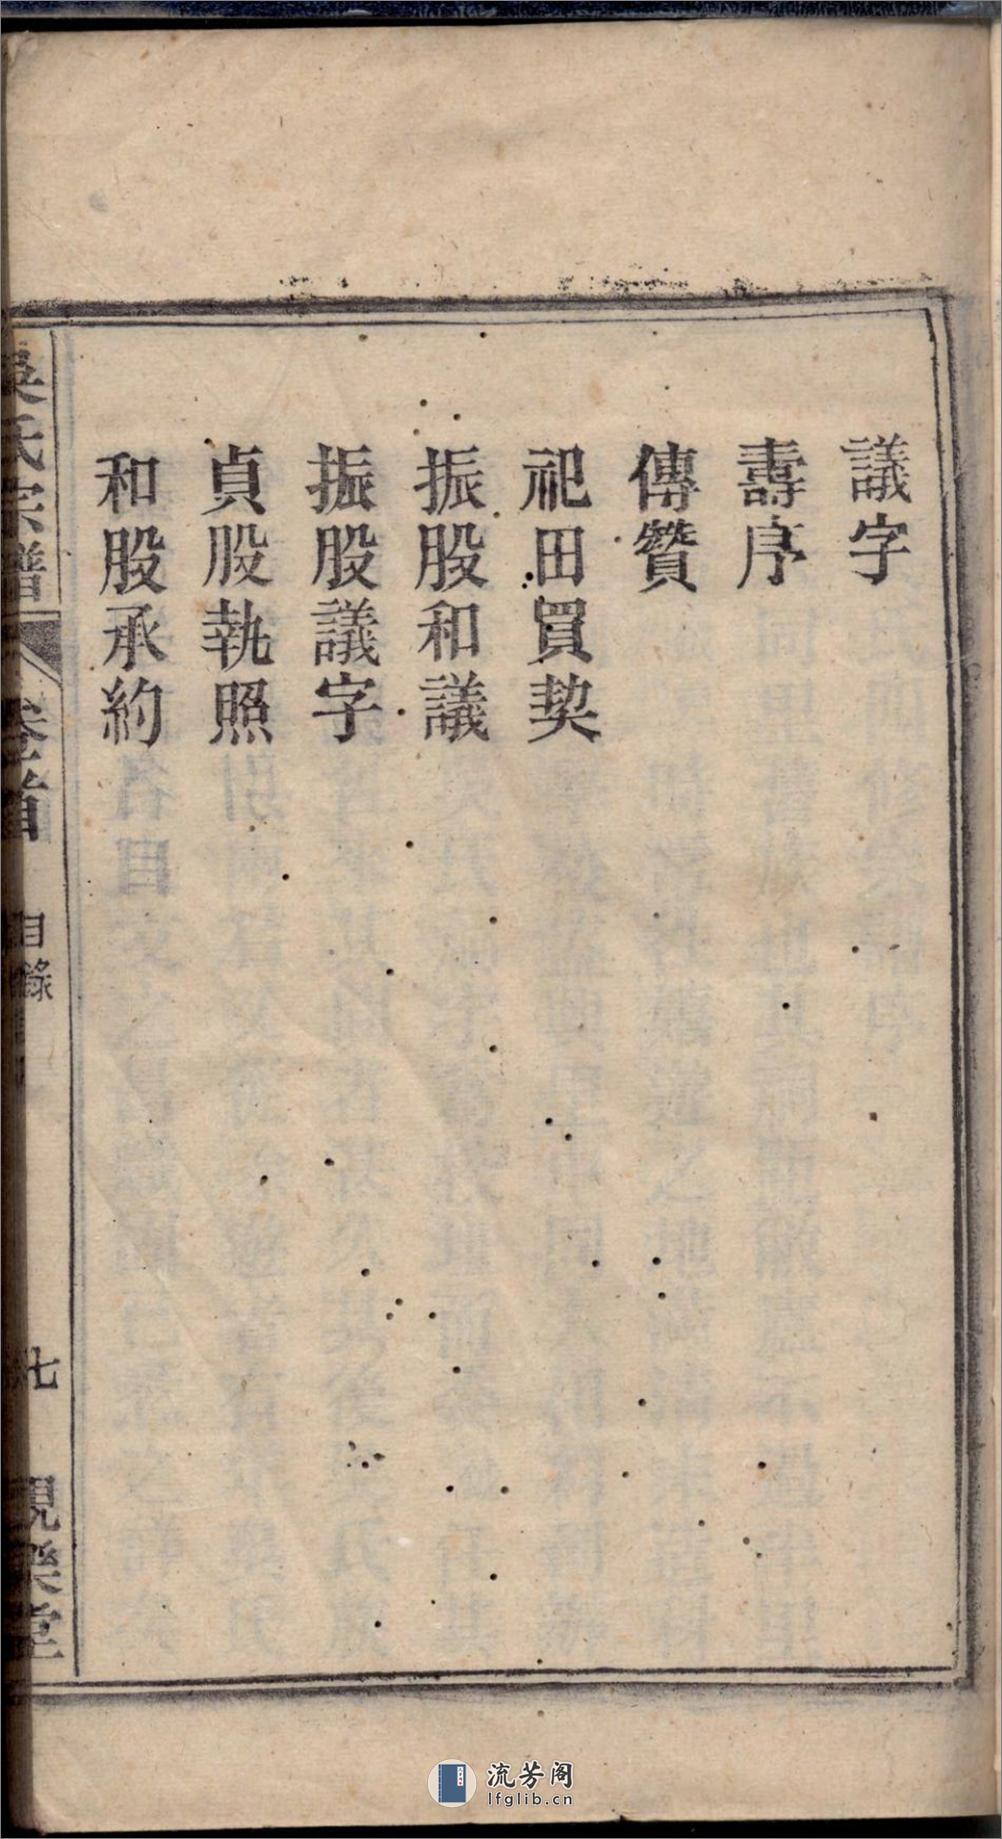 議字
壽序
傳贊
祀田買契
振股和議
振股議字
貞股執照
和股承約
吳氏宗譜
卷首
目錄
七
堂
流芳阁
lfglib.cn